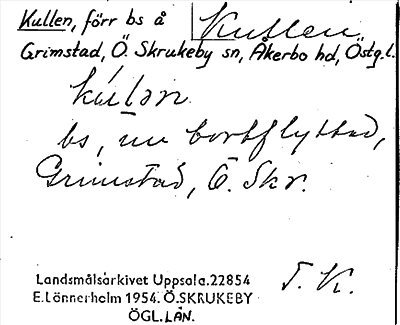 Kullen, förr bs å
Kullen
Grimstad, Ö. Skrukeby sn, Åkerbo hd, Östg.l.
kúlan
bs, nu bortflyttad,
Grimstad, Ö. Skr.
T. K.
Landsmålsarkivet Uppsala.22854
E.Lönnerholm 1954. Ö.SKRUKEBY
ÖGL.LÄN.